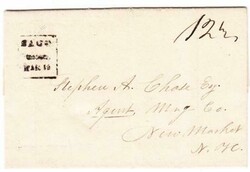 SACO
MAR 19
12½
Stephen A. Chase Esq
Agent, Mag Co.
New Market
N. H.